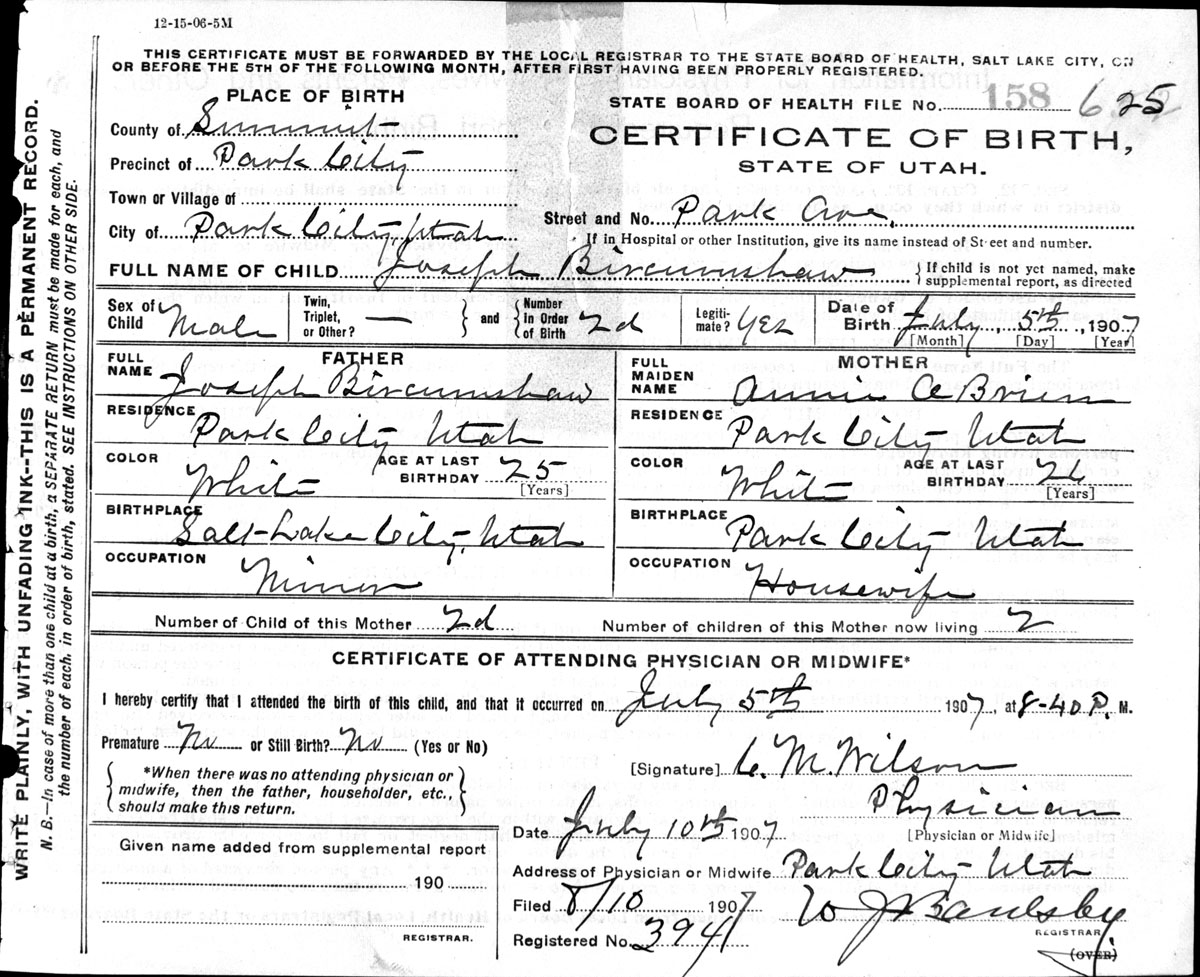 12-15-06-5M
THIS CERTIFICATE MUST BE FORWARDED BY THE LOCAL REGISTRAR TO THE STATE BOARD OF HEALTH, SALT LAKE CITY, ON
OR BEFORE THE 5TH OF THE FOLLOWING MONTH, AFTER FIRST HAVING BEEN PROPERLY REGISTERED.
PLACE OF BIRTH
STATE BOARD OF HEALTH FILE No. 158 625
County of Summit
CERTIFICATE OF BIRTH,
Precinct of Park City
STATE OF UTAH.
Town or Village of
City of Park City, Utah Street and No. Park Ave.
If in Hospital or other Institution, give its name instead of Street and number.
FULL NAME OF CHILD Joseph Bircumshaw { If child is not yet named, make
supplemental report, as directed
Sex of Child Male Twin, Triplet, or Other? — } and { Number in Order of Birth 2d Legiti- mate? Yes Date of Birth July, 5th, 1907
[Month] [Day] [Year]
FATHER MOTHER
FULL NAME Joseph Bircumshaw FULL MAIDEN NAME Annie O Brien
RESIDENCE Park City Utah RESIDENCE Park City Utah
COLOR White AGE AT LAST BIRTHDAY 25 [Years] COLOR White AGE AT LAST BIRTHDAY [Years]
BIRTHPLACE Salt Lake City, Utah BIRTHPLACE Park City Utah
OCCUPATION Miner OCCUPATION Housewife
Number of Child of this Mother 2d Number of children of this Mother now living 2
CERTIFICATE OF ATTENDING PHYSICIAN OR MIDWIFE*
I hereby certify that I attended the birth of this child, and that it occurred on July 5th 1907, at 8-40 P. M.
Premature No or Still Birth? No (Yes or No)
{ *When there was no attending physician or
midwife, then the father, householder, etc.,
should make this return. }
[Signature] C. M. Wilson
Physician
[Physician or Midwife]
Date July 10th 1907
Given name added from supplemental report
190
REGISTRAR.
Address of Physician or Midwife Park City Utah
Filed 8/10 1907
REGISTRAR
Registered No. 394
(OVER)
WRITE PLAINLY, WITH UNFADING INK--THIS IS A PERMANENT RECORD.
N. B.—In case of more than one child at a birth, a SEPARATE RETURN must be made for each, and
the number of each, in order of birth, stated. SEE INSTRUCTIONS ON OTHER SIDE.